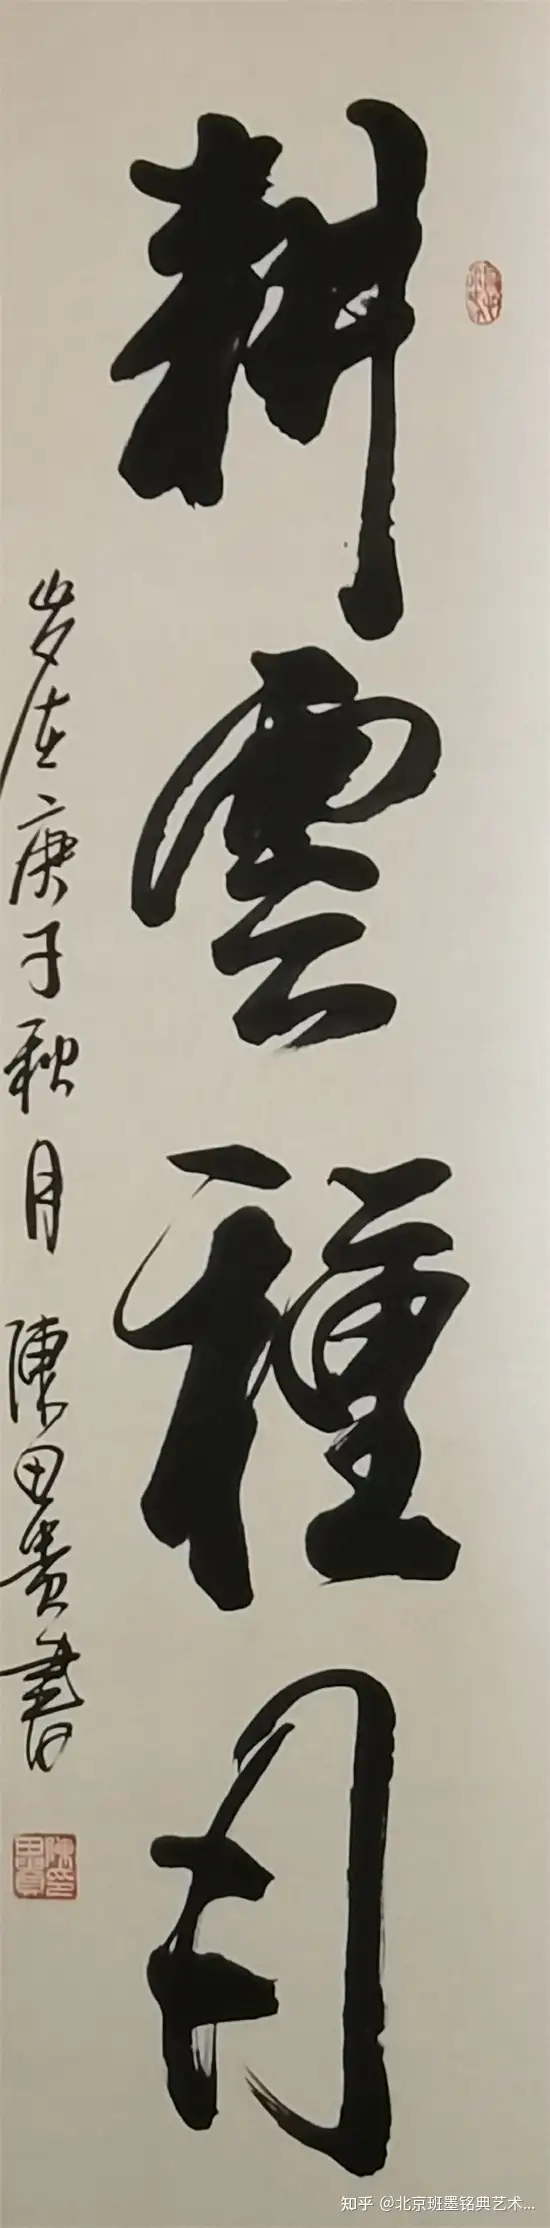 耕雲種月
岁在庚子秋月 陳田貴書
知乎 @北京班墨铭典艺术...